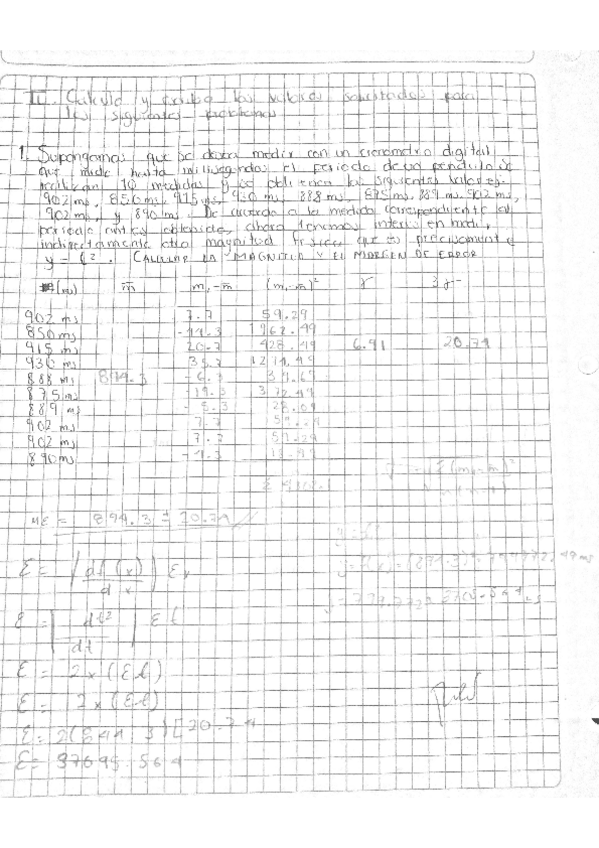 II. Calcula y escriba los valores solicitados para
los siguientes problemas
1. Supongamos que se desea medir con un cronometro digital
que mide hasta milisegundos el periodo de un pendulo se
realizan 10 medidas y se obtienen los siguientes valores:
902 ms, 850 ms, 915 ms, 930 ms, 888 ms, 875 ms, 889 ms, 902 ms,
902 ms, y 890 ms. De acuerdo a la medida correspondiente al
periodo obtenido, ahora tenemos interes en medir
indirectamente otra magnitud fisica que es precisamente
y = t². CALCULAR LA MAGNITUD Y EL MARGEN DE ERROR
(m) m̄ m₁-m̄ (m₁-m̄)² 3
902 ms 7.7 59.29
850 ms -44.3 1962.49
915 ms 20.7 428.49 6.91 20.74
930 ms 35.7 1274.49
888 ms 894.3 -6.3 39.69
875 ms -19.3 372.49
889 ms -5.3 28.09
902 ms 7.7 59.29
902 ms 7.7 59.29
890 ms -4.3 18.49
ME = 894.3 ± 20.74
ε = | df(x) / dx | εx
ε = | dt² / dt | εt
ε = 2x(εt)
ε = 2x(εt)
ε = 2(894.3)[20.74
ε = 37095.564